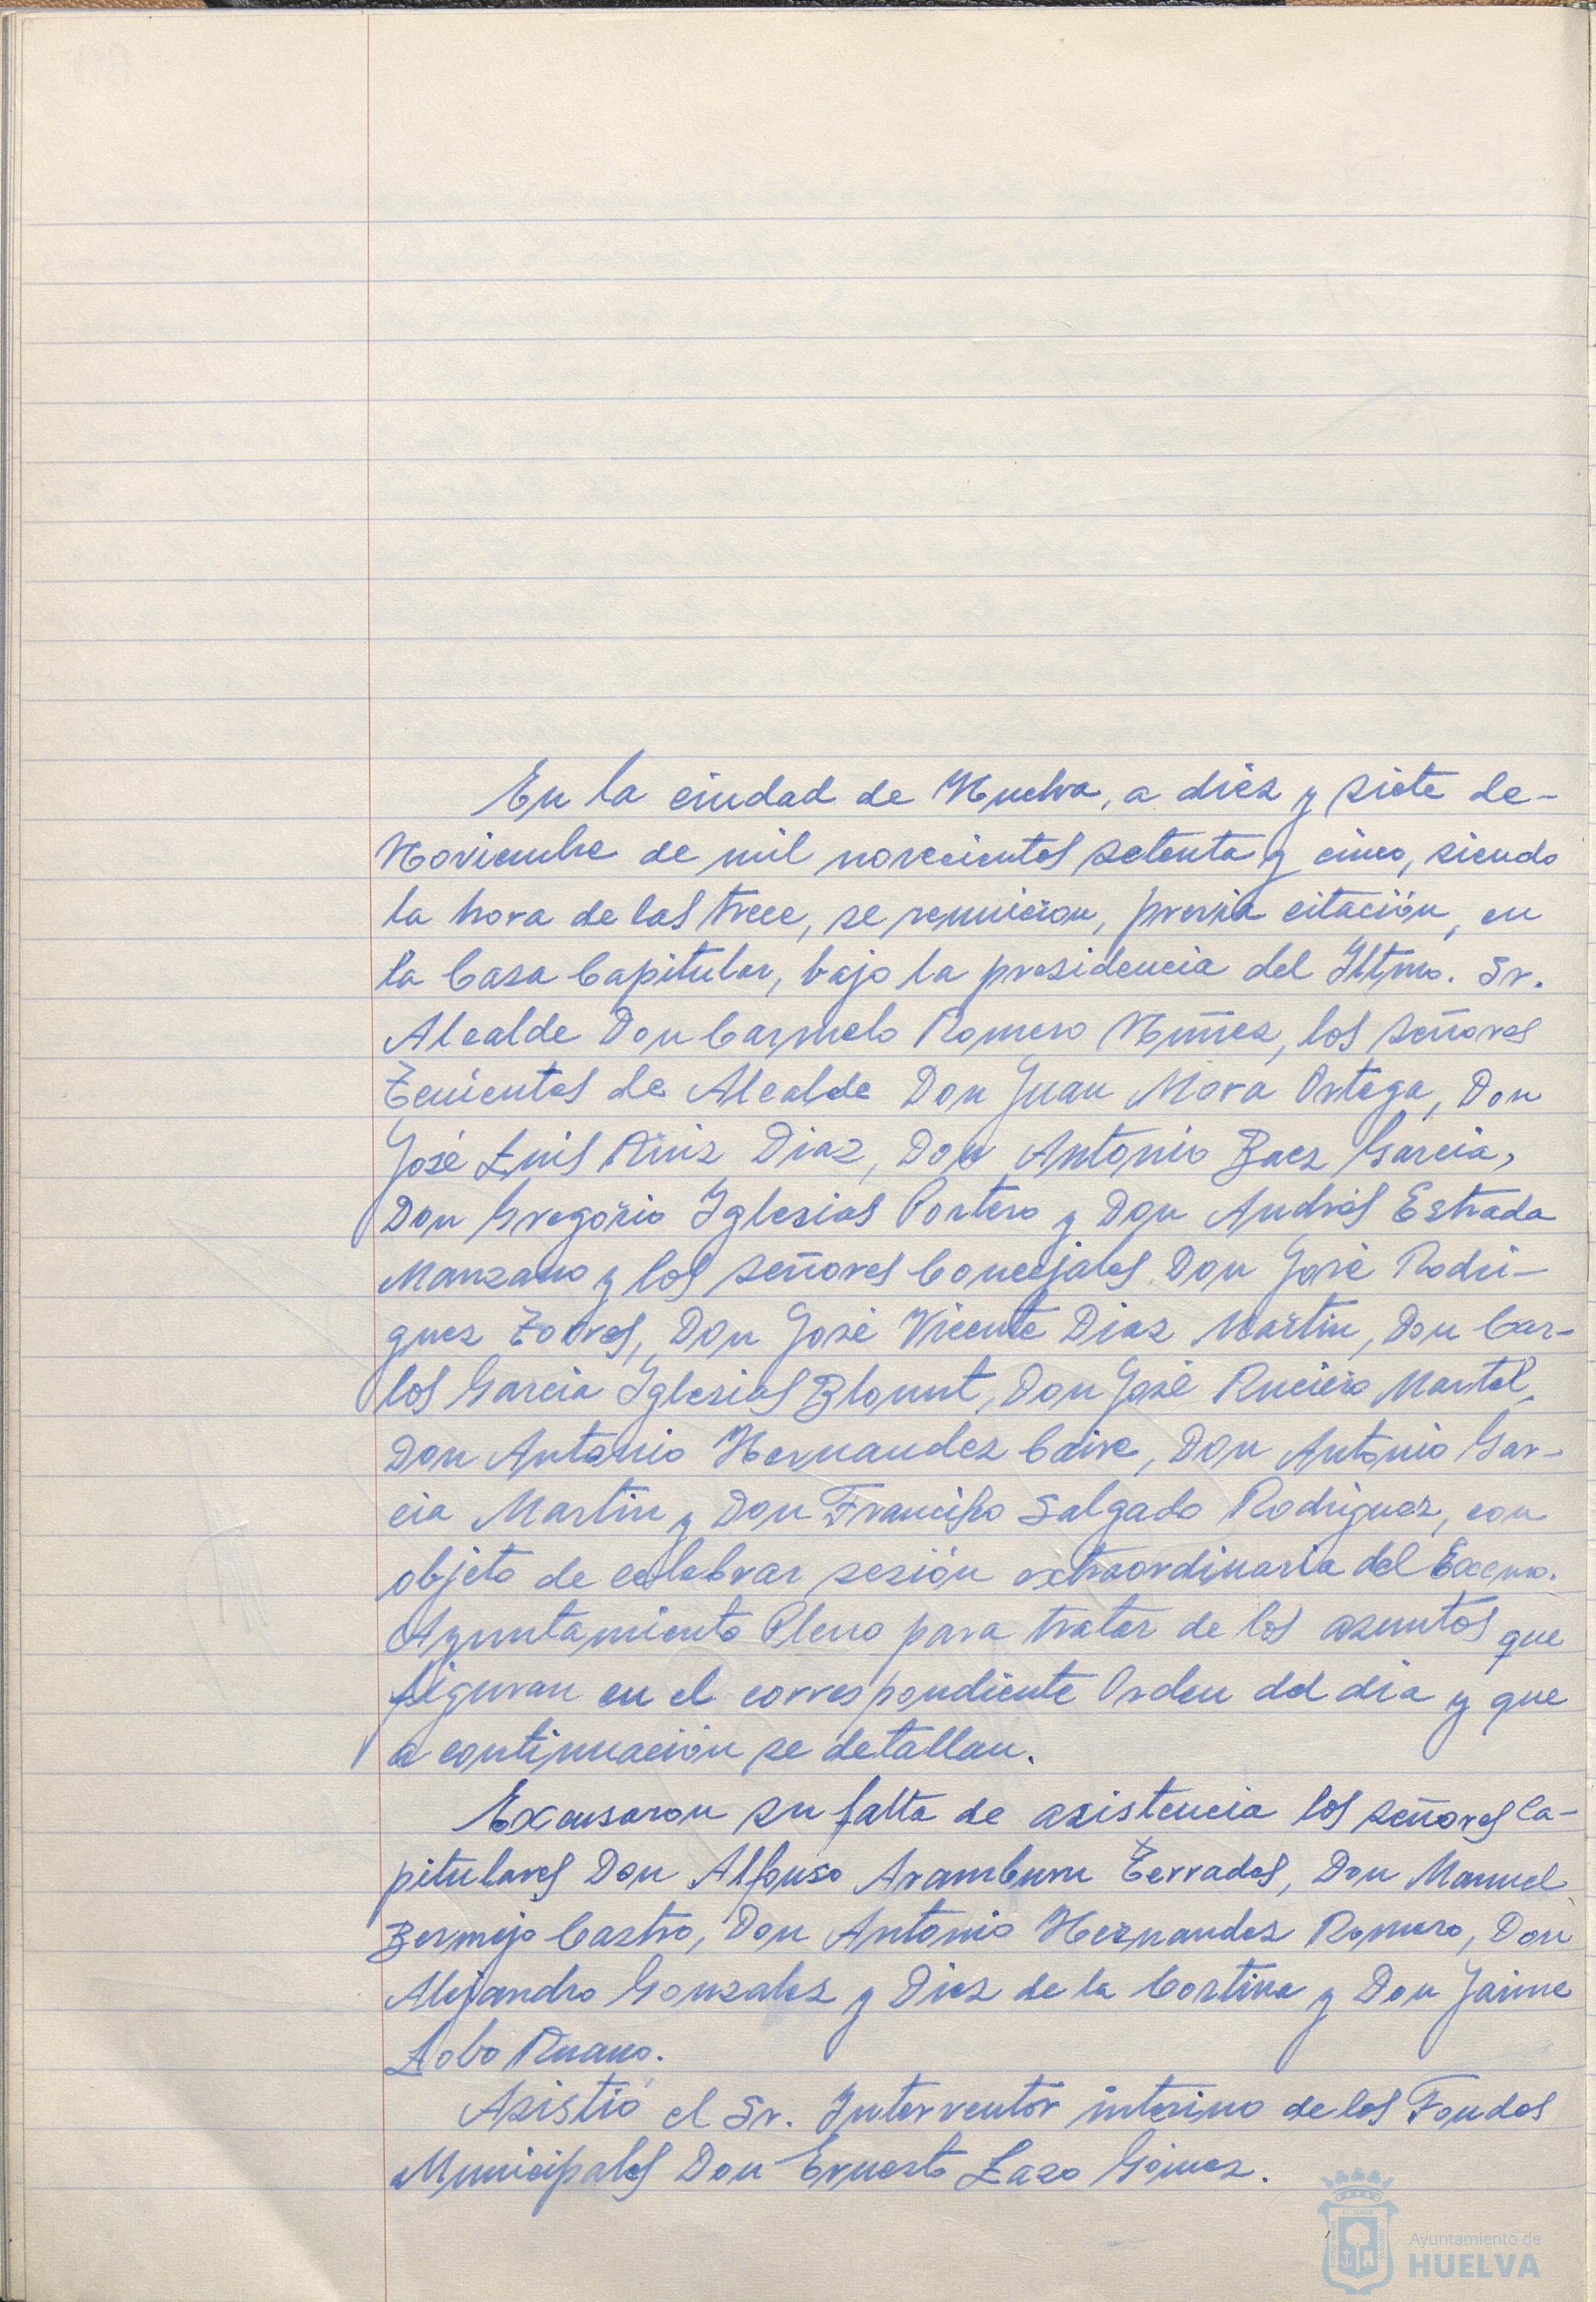 En la ciudad de Huelva, a diez y siete de-
Noviembre de mil novecientos setenta y cinco, siendo
la hora de las trece, se reunieron, previa citación, en
la Casa Capitular, bajo la presidencia del Iltmo. Sr.
Alcalde Don Carmelo Romero Núñez, los señores
Tenientes de Alcalde Don Juan Mora Ortega, Don
José Luis Ruiz Diaz, Don Antonio Baez Garcia,
Don Gregorio Iglesias Portero y Don Andrés Estrada
Manzano y los señores Concejales Don José Rodri-
guez Torres, Don José Vicente Diaz Martin, Don Car-
los Garcia Iglesias Blount, Don José Ruciero Martel,
Don Antonio Hernandez Caire, Don Antonio Gar-
cia Martin y Don Francisco Salgado Rodriguez, con
objeto de celebrar sesión extraordinaria del Excmo.
Ayuntamiento Pleno para tratar de los asuntos que
figuran en el correspondiente Orden del dia y que
a continuación se detallan.
Excusaron su falta de asistencia los señores Ca-
pitulares Don Alfonso Aramburu Terrades, Don Manuel
Bermejo Castro, Don Antonio Hernandez Romero, Don
Alejandro Gonzalez y Diez de la Cortina y Don Jaime
Lobo Ruano.
Asistió el Sr. Interventor interino de los Fondos
Municipales Don Ernesto Lazo Gómez.
Ayuntamiento de
HUELVA